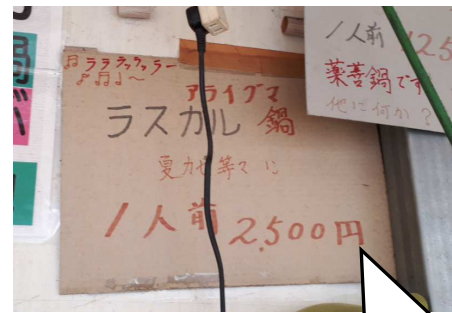 鍋が
♬ラララララー
♪♬♩〜
アライグマ
ラスカル 鍋
夏カゼ等々に
1人前 2,500円
1人前 2.5
薬善鍋です
他に何か?